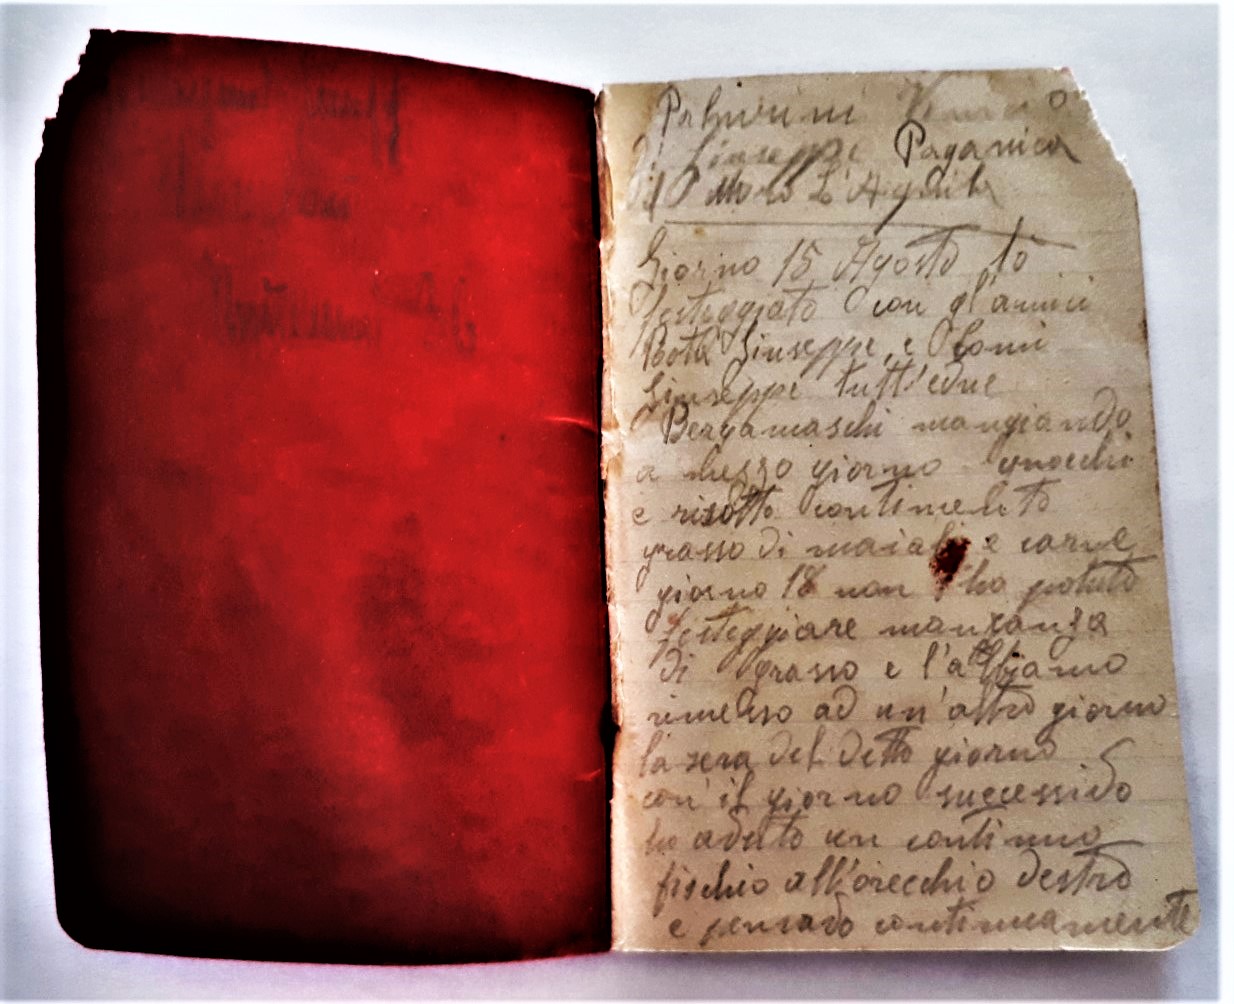 Giuseppe Paganica
L'Aquila
Giorno 15 Agosto lo
festeggiato con gl'amici
Botta Giuseppe, e
Giuseppe tutt'edue
Bergamaschi mangiando
a Messo giorno gnocchi
e risotto contimento
grasso di maiale e carne
giorno 18 non l'ho potuto
festeggiare mancanza
di grasso e l'abbiamo
rimesso ad un'altro giorno
la sera del detto giorno
con il giorno successivo
ho avuto un continuo
fischio all'orecchio destro
e pensavo continuamente